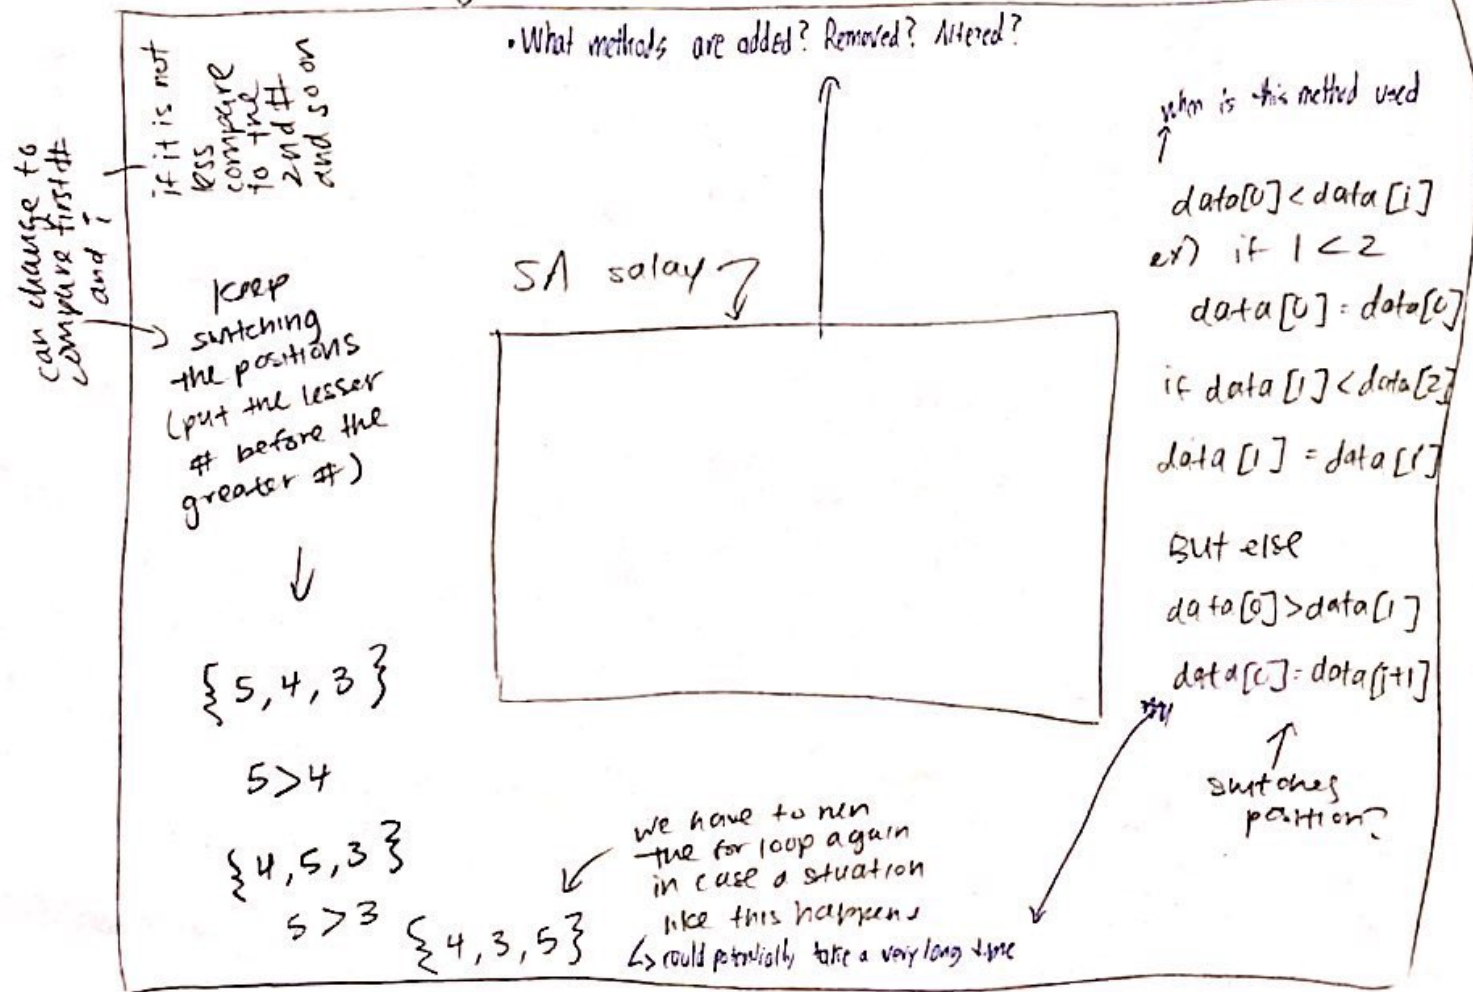 • What methods are added? Removed? Altered?
if it is not
less
compare
to the
2nd #
and so on
can change to
compare first #
and i
keep
switching
the positions
(put the lesser
# before the
greater #)
{5,4,3}
5>4
{4,5,3}
5>3
{4,3,5}
we have to run
the for loop again
in case a situation
like this happens
↳ could potentially take a very long time
SA salay
when is this method used
data[0]<data[i]
ex) if 1<2
data[0]=data[0]
if data[1]<data[2]
data[1]=data[1]
But else
data[0]>data[1]
data[0]=data[j+1]
switches
position?